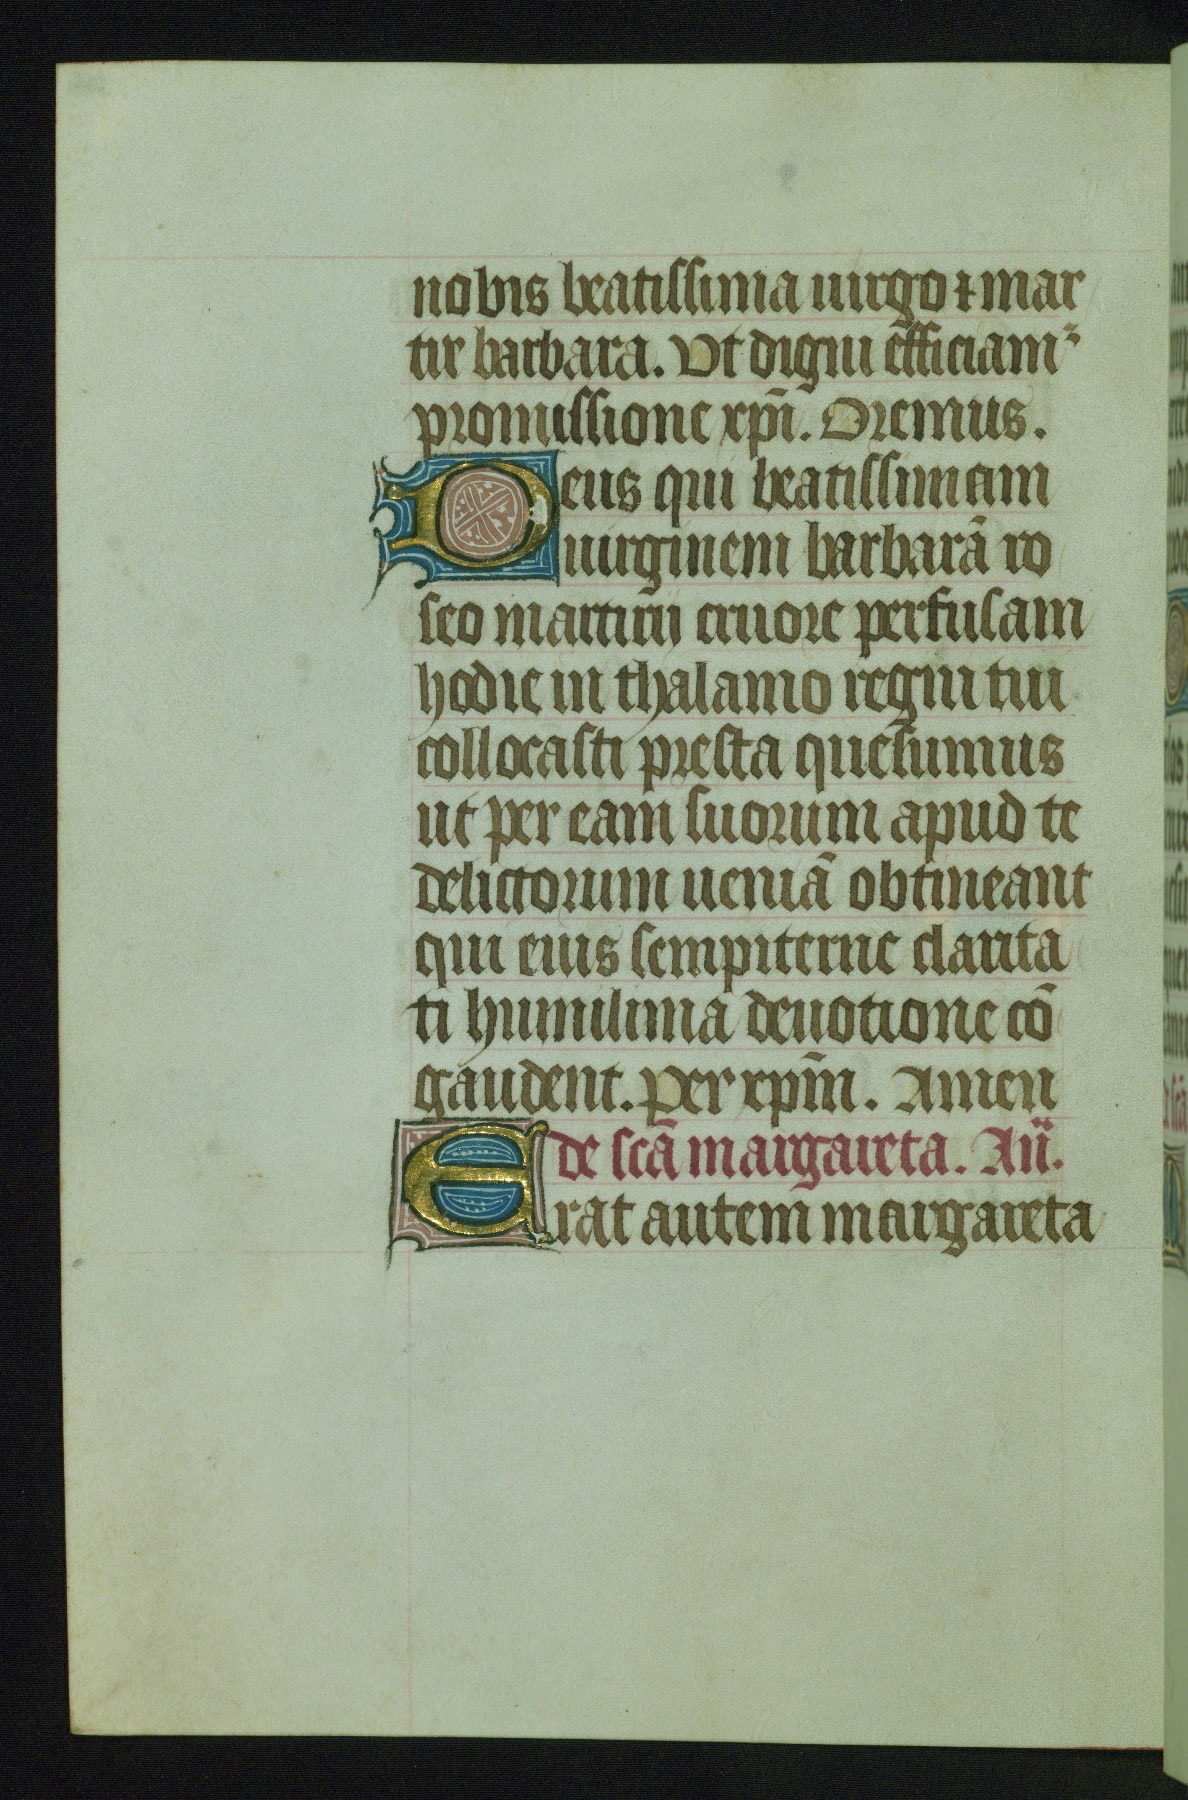 nobis beatissima uirgo ⁊ mar
tir barbara. Ut digni efficiamᷣ
promissione xp̄i. Oremus.
Deus qui beatissimam
uirginem barbarā ro
seo martirij cruore perfusam
hodie in thalamo regni tui
collocasti presta quesumus
ut per eam suorum apud te
delictorum ueniā obtineant
qui eius sempiterne clarita
ti humilima deuotione cō
gaudent. Per xp̄m. Amen
de scā margareta. An̄.
Erat autem margareta